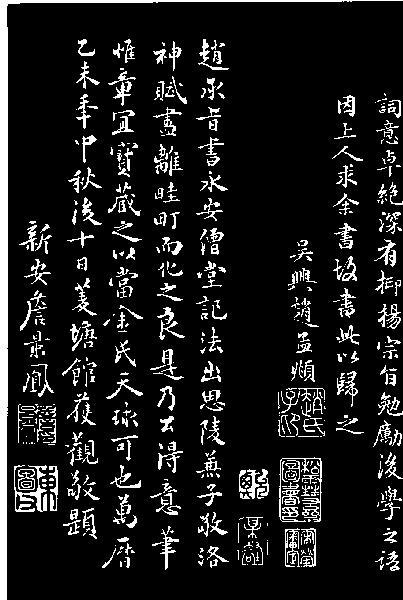 詞意卓絶深有抑揚宗旨勉勵後學之語
因上人求余書故書此以歸之
吳興趙孟頫
趙氏子昂
趙承旨書永安僧堂記法出思陵兼子敬洛
神賦盡離畦町而化之良是乃公得意筆
惟章宜寶藏之以當金氏天球可也萬曆
乙未年中秋後十日菱塘館獲觀敬題
新安詹景鳳